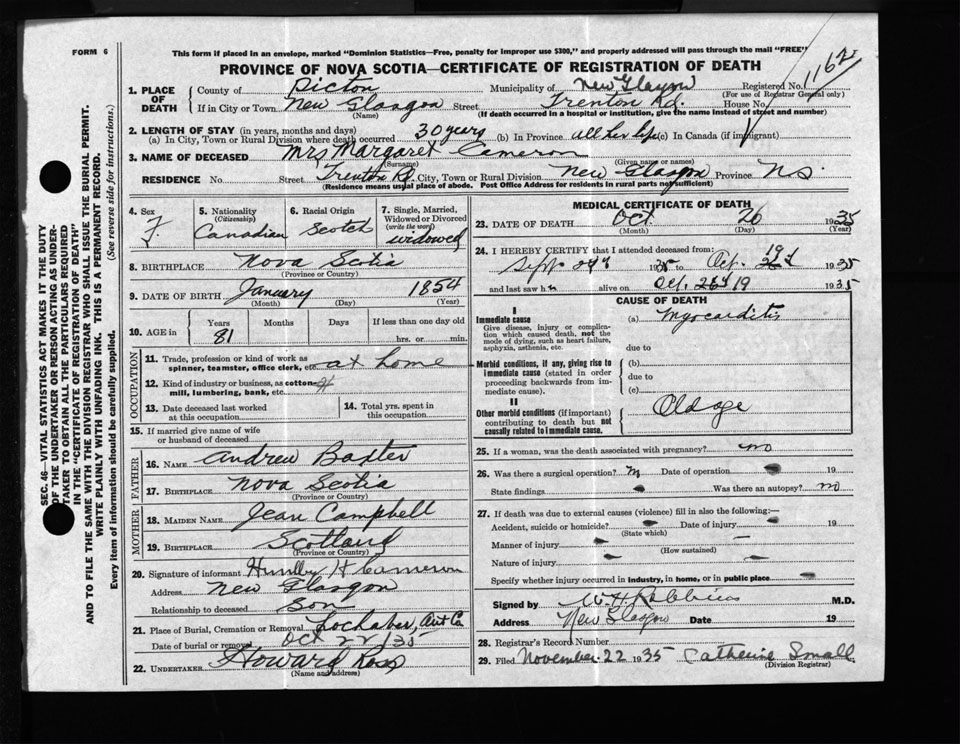 FORM 6
This form if placed in an envelope, marked "Dominion Statistics—Free, penalty for improper use $300," and properly addressed will pass through the mail "FREE"
PROVINCE OF NOVA SCOTIA—CERTIFICATE OF REGISTRATION OF DEATH
1162
1. PLACE OF DEATH
County of Pictou Municipality of New Glasgow Registered No.
(For use of Registrar General only)
If in City or Town New Glasgow Street Trenton Rd. House No.
(Name) (If death occurred in a hospital or institution, give the name instead of street and number)
2. LENGTH OF STAY (in years, months and days)
(a) In City, Town or Rural Division where death occurred 30 years (b) In Province all her life (c) In Canada (if immigrant)
3. NAME OF DECEASED Mrs Margaret Cameron
(Surname) (Given name or names)
RESIDENCE No. Street Trenton Rd. City, Town or Rural Division New Glasgow Province N.S.
(Residence means usual place of abode. Post Office Address for residents in rural parts not sufficient)
4. Sex F
5. Nationality (Citizenship) Canadian
6. Racial Origin Scotch
7. Single, Married, Widowed or Divorced (write the word) widowed
8. BIRTHPLACE Nova Scotia
(Province or Country)
9. DATE OF BIRTH January 1854
(Month) (Day) (Year)
10. AGE in Years 81 Months Days If less than one day old hrs. or min.
OCCUPATION
11. Trade, profession or kind of work as spinner, teamster, office clerk, etc. at home
12. Kind of industry or business, as cotton mill, lumbering, bank, etc.
13. Date deceased last worked at this occupation
14. Total yrs. spent in this occupation
15. If married give name of wife or husband of deceased
FATHER
16. NAME Andrew Baxter
17. BIRTHPLACE Nova Scotia
(Province or Country)
MOTHER
18. MAIDEN NAME Jean Campbell
19. BIRTHPLACE Scotland
(Province or Country)
20. Signature of informant H Cameron
Address New Glasgow
Relationship to deceased Son
21. Place of Burial, Cremation or Removal Lochaber, Ant Co
Date of burial or removal Oct 22/35
22. UNDERTAKER Howard Ross
(Name and address)
MEDICAL CERTIFICATE OF DEATH
23. DATE OF DEATH Oct 26 1935
(Month) (Day) (Year)
24. I HEREBY CERTIFY that I attended deceased from:
Sept 1935 to Oct. 1935
and last saw h alive on Oct. 1935
CAUSE OF DEATH
I
Immediate cause
Give disease, injury or complication which caused death, not the mode of dying, such as heart failure, asphyxia, asthenia, etc.
(a) Myocarditis
due to
Morbid conditions, if any, giving rise to immediate cause (stated in order proceeding backwards from immediate cause).
(b)
due to
(c)
II
Other morbid conditions (if important) contributing to death but not causally related to immediate cause.
Old age
25. If a woman, was the death associated with pregnancy? no
26. Was there a surgical operation? Date of operation 19
State findings Was there an autopsy? no
27. If death was due to external causes (violence) fill in also the following:—
Accident, suicide or homicide? Date of injury 19
(State which)
Manner of injury
(How sustained)
Nature of injury
Specify whether injury occurred in industry, in home, or in public place
Signed by M.D.
Address New Glasgow Date 19
28. Registrar's Record Number
29. Filed November 22 1935 Catherine Small
(Division Registrar)
SEC. 46—VITAL STATISTICS ACT MAKES IT THE DUTY
OF THE UNDERTAKER OR PERSON ACTING AS UNDER-
TAKER TO OBTAIN ALL THE PARTICULARS REQUIRED
IN THE "CERTIFICATE OF REGISTRATION OF DEATH"
AND TO FILE THE SAME WITH THE DIVISION REGISTRAR WHO SHALL ISSUE THE BURIAL PERMIT.
WRITE PLAINLY WITH UNFADING INK. THIS IS A PERMANENT RECORD.
Every item of information should be carefully supplied. (See reverse side for instructions.)